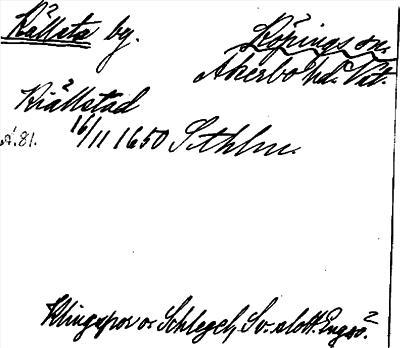 Källsta by.
Köpings sn.
Åkerbo hd. Vstm.
Kiällstad
Å. 81. 16/11 1650 Sthlm.
Klingspor o. Schlegel, Sv. slott. Engsö.